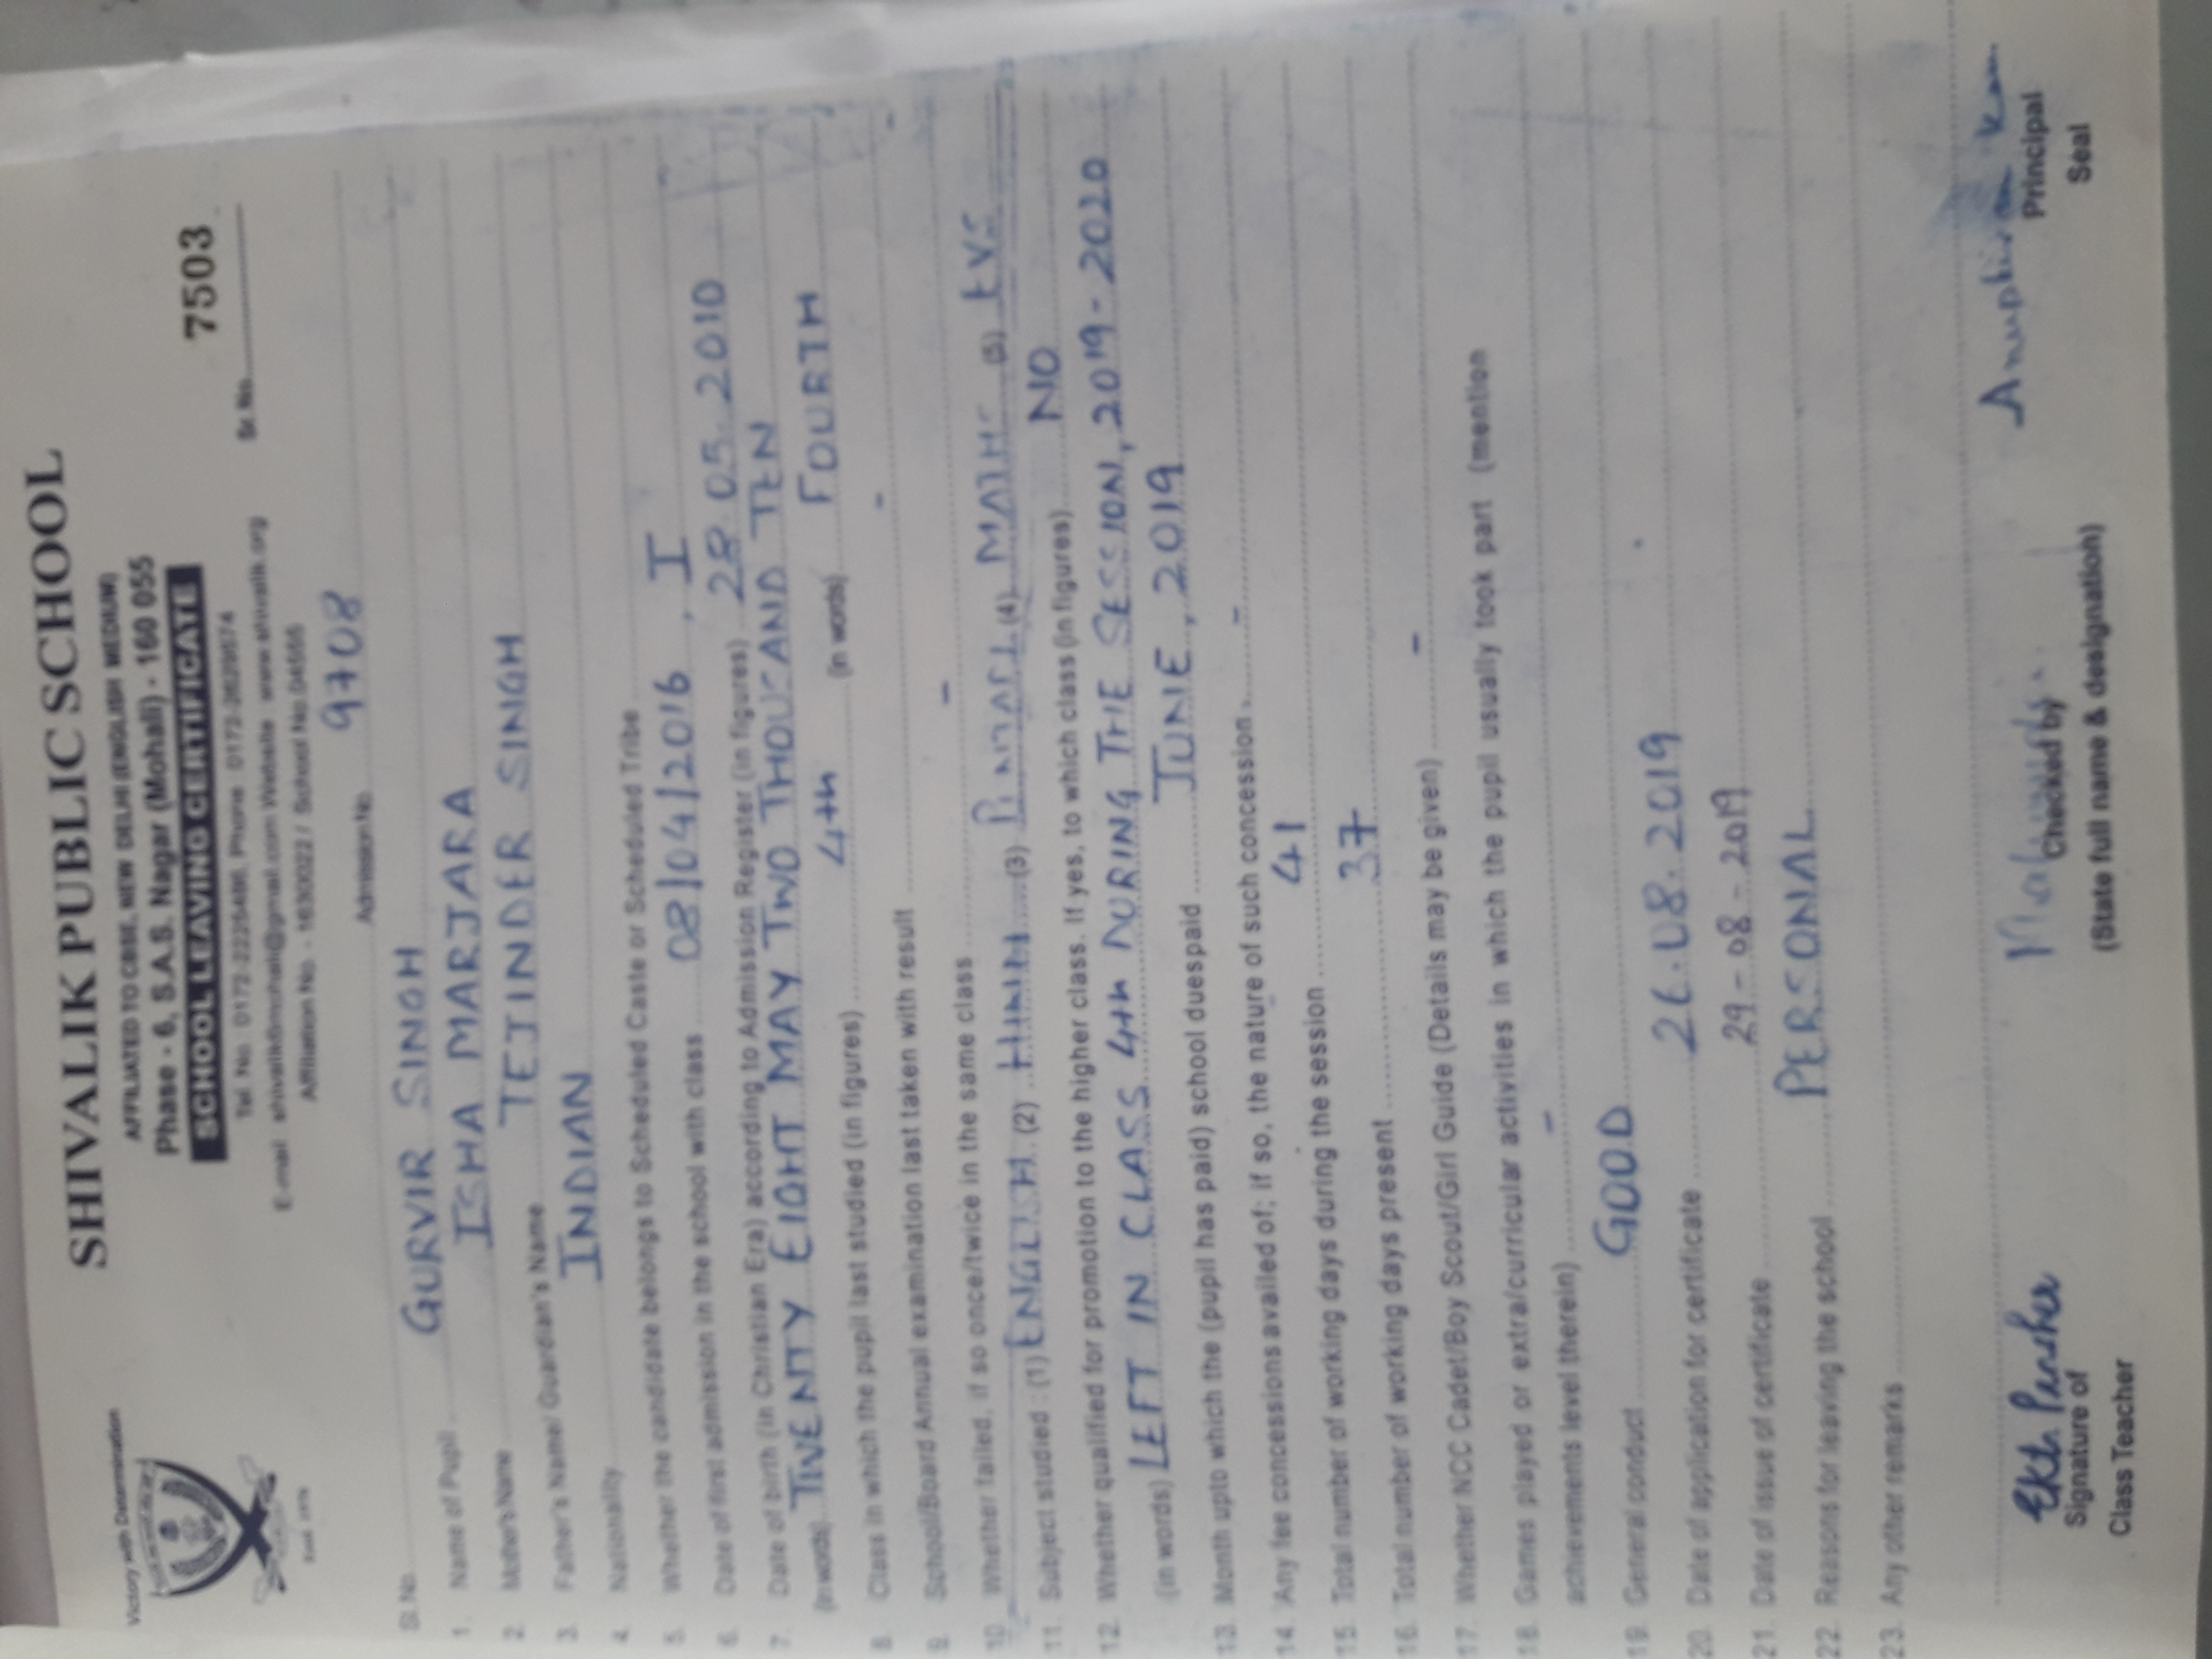 Victory with Determination
SHIVALIK PUBLIC SCHOOL
AFFILIATED TO CBSE, NEW DELHI (ENGLISH MEDIUM)
Phase - 6, S.A.S. Nagar (Mohali) - 160 055
SCHOOL LEAVING CERTIFICATE
7503
Tel. No. Phone
Sr. No.
E-mail Website www.shivalik.org
Affiliation No. - 1630022 / School No.
Admission No. 9708
Sl.No.
1. Name of Pupil GURVIR SINGH
2. Mother's Name ISHA MARJARA
3. Father's Name/ Guardian's Name TEJINDER SINGH
4. Nationality INDIAN
5. Whether the candidate belongs to Scheduled Caste or Scheduled Tribe
6. Date of first admission in the school with class 08/04/2016, I
7. Date of birth (in Christian Era) according to Admission Register (in figures) 28.05.2010
(in words) TWENTY EIGHT MAY TWO THOUSAND TEN
8. Class in which the pupil last studied (in figures) 4th (in words) FOURTH
9. School/Board Annual examination last taken with result -
10. Whether failed, if so once/twice in the same class -
11. Subject studied : (1) ENGLISH (2) HINDI (3) PUNJABI (4) MATHS (5) EVS
12. Whether qualified for promotion to the higher class. If yes, to which class (in figures) NO
(in words) LEFT IN CLASS 4th DURING THE SESSION, 2019-2020
13. Month upto which the (pupil has paid) school dues paid JUNE, 2019
14. Any fee concessions availed of; if so, the nature of such concession -
15. Total number of working days during the session 41
16. Total number of working days present 37
17. Whether NCC Cadet/Boy Scout/Girl Guide (Details may be given) -
18. Games played or extra/curricular activities in which the pupil usually took part (mention
achievements level therein) -
19. General conduct GOOD
20. Date of application for certificate 26.08.2019
21. Date of issue of certificate 29-08-2019
22. Reasons for leaving the school PERSONAL
23. Any other remarks
Signature of
Class Teacher
Checked by
(State full name & designation)
Principal
Seal